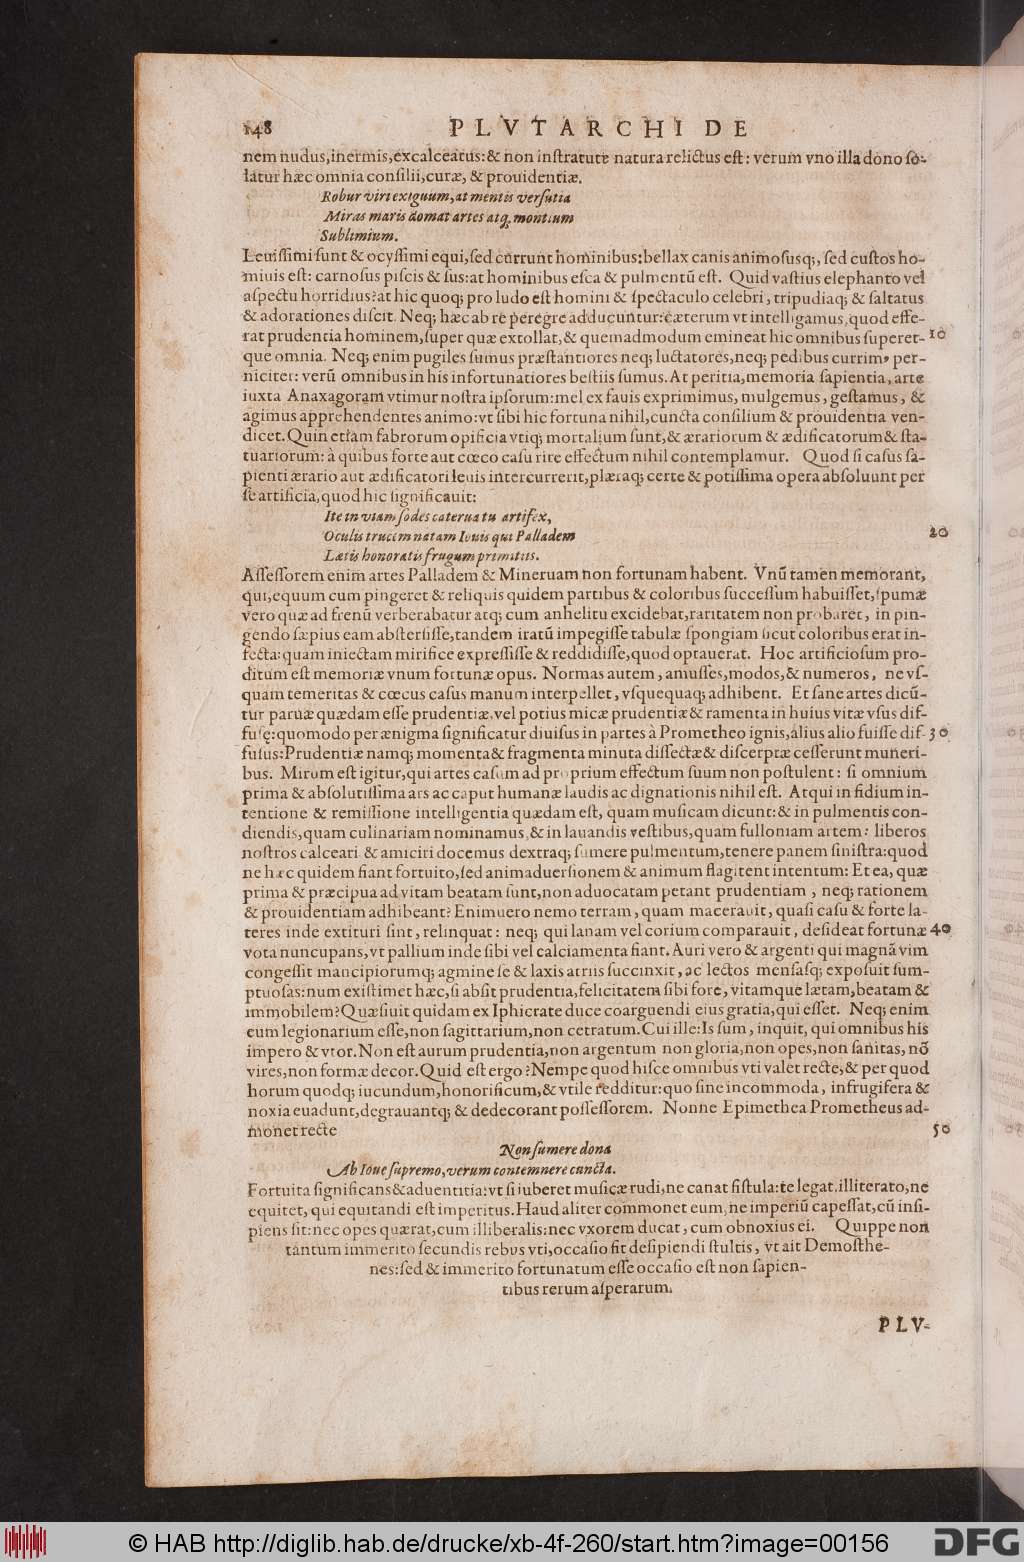 148 PLVTARCHI DE
nem nudus, inermis, excalceatus: & non instratute natura relictus est: verum vno illa dono so-
latur hæc omnia consilii, curæ, & prouidentiæ.
Robur viri exiguum, at mentis versutia
Miras maris domat artes atq; montium
Sublimium.
Leuissimi sunt & ocyssimi equi, sed currunt hominibus: bellax canis animosusq;, sed custos ho-
minis est: carnosus piscis & sus: at hominibus esca & pulmentū est. Quid vastius elephanto vel
aspectu horridius? at hic quoq; pro ludo est homini & spectaculo celebri, tripudiaq; & saltatus
& adorationes discit. Neq; hæc ab re peregre adducuntur: cæterum vt intelligamus, quod effe-
rat prudentia hominem, super quæ extollat, & quemadmodum emineat hic omnibus superet- 10
que omnia. Neq; enim pugiles sumus præstantiores neq; luctatores, neq; pedibus currim, per-
niciter: verū omnibus in his infortunatiores bestiis sumus. At peritia, memoria sapientia, arte
iuxta Anaxagoram vtimur nostra ipsorum: mel ex fauis exprimimus, mulgemus, gestamus, &
agimus apprehendentes animo: vt sibi hic fortuna nihil, cuncta consilium & prouidentia ven-
dicet. Quin etiam fabrorum opificia vtiq; mortalium sunt, & ærariorum & ædificatorum & sta-
tuariorum: à quibus forte aut cœco casu rite effectum nihil contemplamur. Quod si casus sa-
pienti ærario aut ædificatori leuis intercurrerit, plæraq; certe & potissima opera absoluunt per
se artificia, quod hic significauit:
Ite in viam sodes caterua tu artifex,
Oculis trucem natam Iouis qui Palladem 20
Lætis honoratis frugum primitiis.
Assessorem enim artes Palladem & Mineruam non fortunam habent. Vnū tamen memorant,
qui, equum cum pingeret & reliquis quidem partibus & coloribus successum habuisset, spumæ
vero quæ ad frenū verberabatur atq; cum anhelitu excidebat, raritatem non probaret, in pin-
gendo sæpius eam abstersisse, tandem iratū impegisse tabulæ spongiam sicut coloribus erat in-
fecta: quam iniectam mirifice expressisse & reddidisse, quod optauerat. Hoc artificiosum pro-
ditum est memoriæ vnum fortunæ opus. Normas autem, amusses, modos, & numeros, ne vs-
quam temeritas & cœcus casus manum interpellet, vsquequaq; adhibent. Et sane artes dicū-
tur paruæ quædam esse prudentiæ, vel potius micæ prudentiæ & ramenta in huius vitæ vsus dif-
fusę: quomodo per ænigma significatur diuisus in partes à Prometheo ignis, alius alio fuisse dif- 30
fusus: Prudentiæ namq; momenta & fragmenta minuta dissectæ & discerptæ cesserunt muneri-
bus. Mirum est igitur, qui artes casum ad proprium effectum suum non postulent: si omnium
prima & absolutissima ars ac caput humanæ laudis ac dignationis nihil est. Atqui in fidium in-
tentione & remissione intelligentia quædam est, quam musicam dicunt: & in pulmentis con-
diendis, quam culinariam nominamus, & in lauandis vestibus, quam fulloniam artem: liberos
nostros calceari & amiciri docemus dextraq; sumere pulmentum, tenere panem sinistra: quod
ne hæc quidem fiant fortuito, sed animaduersionem & animum flagitent intentum: Et ea, quæ
prima & præcipua ad vitam beatam sunt, non aduocatam petant prudentiam, neq; rationem
& prouidentiam adhibeant? Enimuero nemo terram, quam macerauit, quasi casu & forte la-
teres inde extituri sint, relinquat: neq; qui lanam vel corium comparauit, desideat fortunæ 40
vota nuncupans, vt pallium inde sibi vel calciamenta fiant. Auri vero & argenti qui magnā vim
congessit mancipiorumq; agmine se & laxis atriis succinxit, ac lectos mensasq; exposuit sum-
ptuosas: num existimet hæc, si absit prudentia, felicitatem sibi fore, vitamque lætam, beatam &
immobilem? Quæsiuit quidam ex Iphicrate duce coarguendi eius gratia, qui esset. Neq; enim
eum legionarium esse, non sagittarium, non cetratum. Cui ille: Is sum, inquit, qui omnibus his
impero & vtor. Non est aurum prudentia, non argentum non gloria, non opes, non sanitas, nō
vires, non formæ decor. Quid est ergo? Nempe quod hisce omnibus vti valet recte, & per quod
horum quodq; iucundum, honorificum, & vtile redditur: quo sine incommoda, infrugifera &
noxia euadunt, degrauantq; & dedecorant possessorem. Nonne Epimethea Prometheus ad-
monet recte 50
Non sumere dona
Ab Ioue supremo, verum contemnere cuncta.
Fortuita significans & aduentitia: vt si iuberet musicæ rudi, ne canat fistula: te legat, illiterato, ne
equitet, qui equitandi est imperitus. Haud aliter commonet eum, ne imperiū capessat, cū insi-
piens sit: nec opes quærat, cum illiberalis: nec vxorem ducat, cum obnoxius ei. Quippe non
tantum immerito secundis rebus vti, occasio fit desipiendi stultis, vt ait Demosthe-
nes: sed & immerito fortunatum esse occasio est non sapien-
tibus rerum asperarum.
PLV-
© HAB http://diglib.hab.de/drucke/xb-4f-260/start.htm?image=00156
DFG